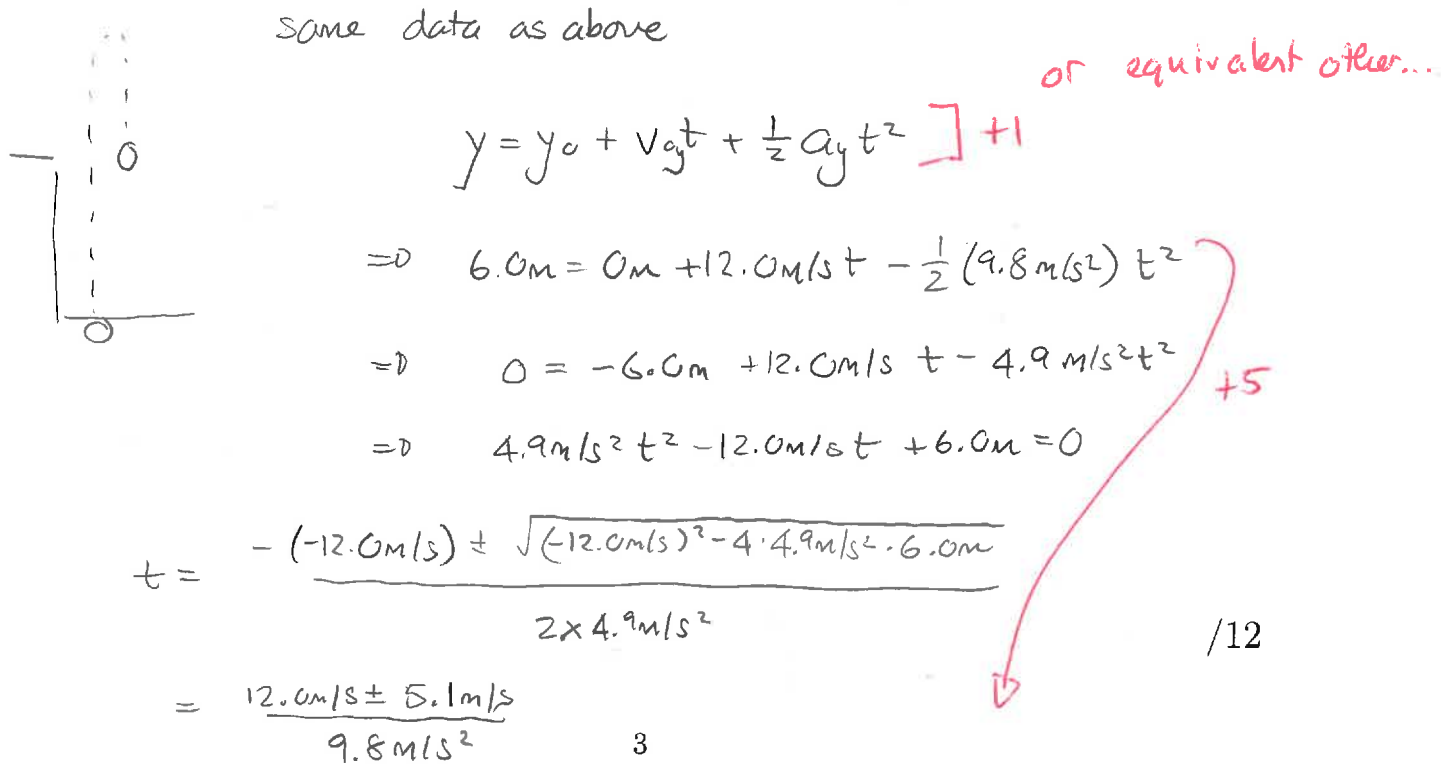 same data as above
or equivalent other...
y = y₀ + v₀yt + ½ ayt² ] +1
=> 6.0m = 0m + 12.0m/s t - ½ (9.8m/s²) t²
=> 0 = -6.0m + 12.0m/s t - 4.9 m/s² t²
+5
=> 4.9m/s² t² - 12.0m/s t + 6.0m = 0
t = -(-12.0m/s) ± √(-12.0m/s)² - 4·4.9m/s²·6.0m
2×4.9m/s²
/12
= 12.0m/s ± 5.1m/s
9.8m/s²
3